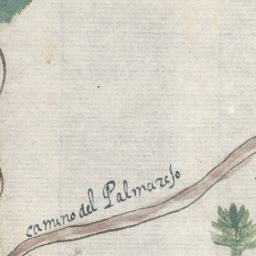 camino del Palmarejo